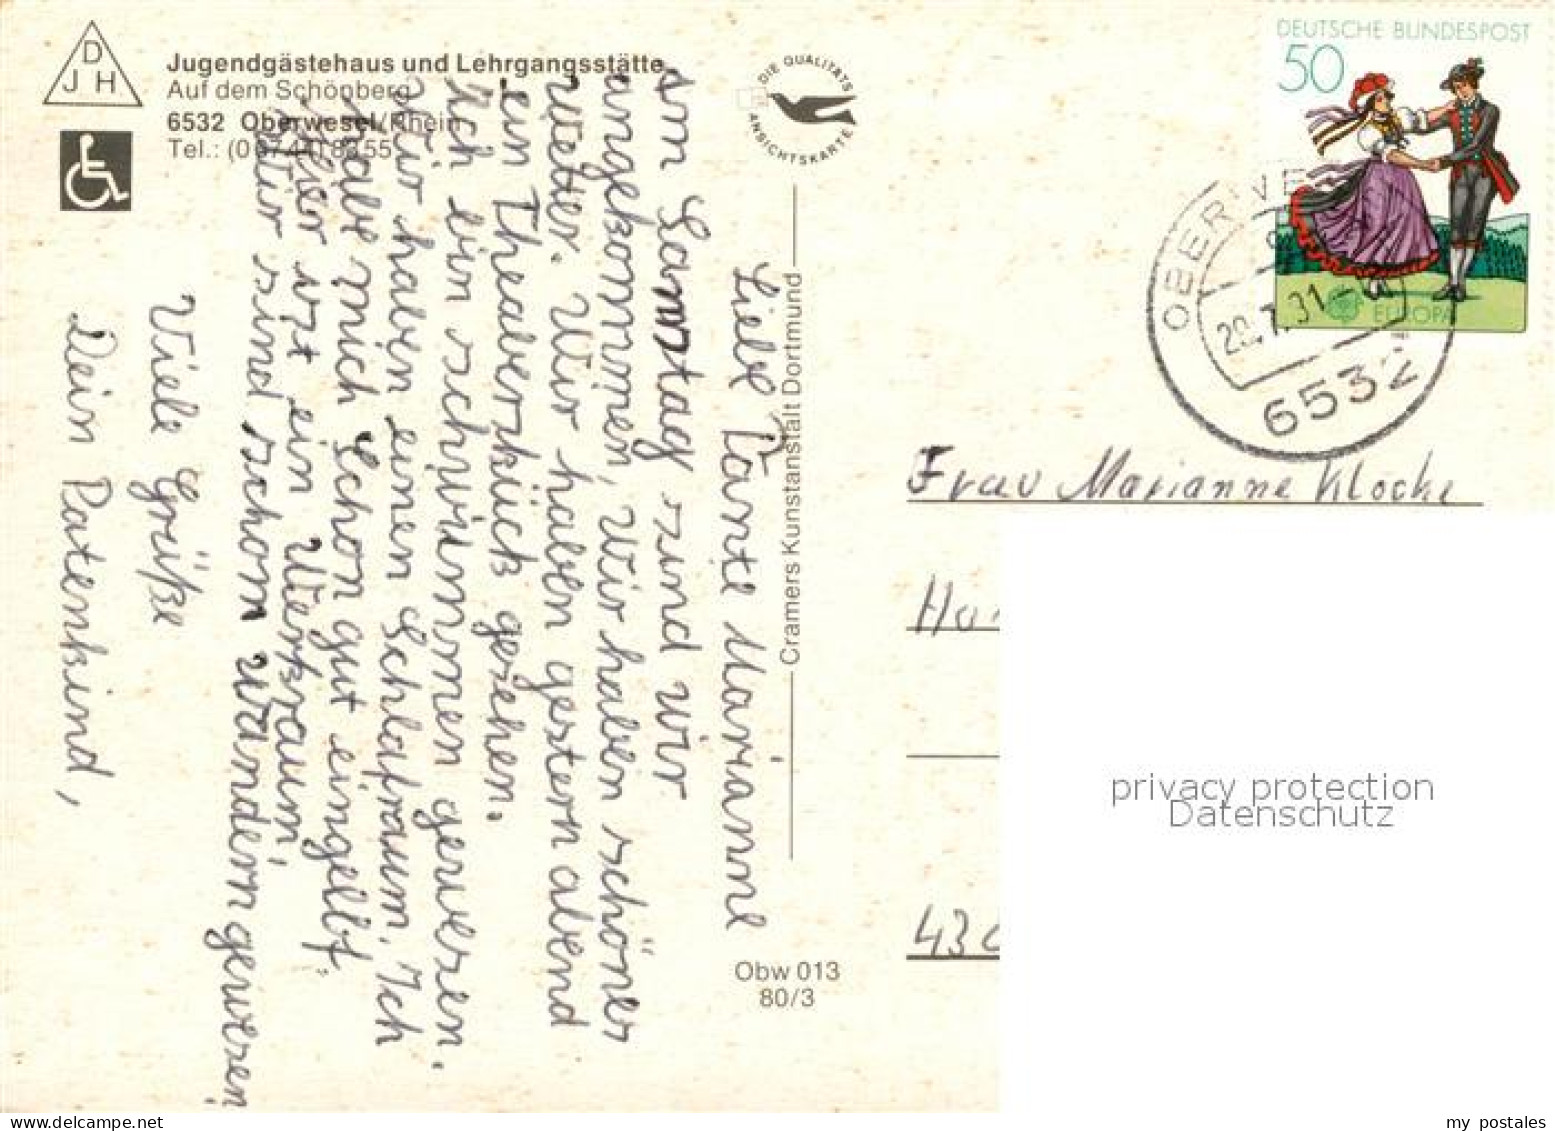 D
J H
Jugendgästehaus und Lehrgangsstätte
Auf dem Schönberg
6532 Oberwesel/Rhein
Tel.:
DIE QUALITÄTS
ANSICHTSKARTE
DEUTSCHE BUNDESPOST
50
EUROPA
6532
Liebe Tante Marianne
Am Samstag sind wir
angekommen, Wir haben schönes
Wetter. Wir haben gestern abend
ein Theaterstück gesehen.
Ich bin schwimmen gewesen.
Wir haben einen Schlafraum. Ich
habe mich schon gut eingelebt.
Hier ist ein Werkraum,
Wir sind schon Wandern gewesen,
Viele Grüße
Dein Patenkind,
Cramers Kunstanstalt Dortmund
Obw 013
80/3
Frau Marianne Klocke
privacy protection
Datenschutz
my postales